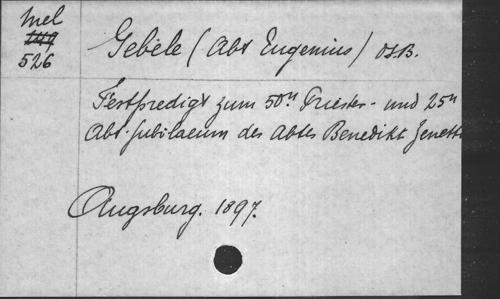 Mel
149
526
Gebele (Abt Eugenius) O.S.B.
Festpredigt zum 50n Priester- und 25n
Abt-Jubilaeum des Abtes Benedikt Zenetti
Augsburg. 1897.